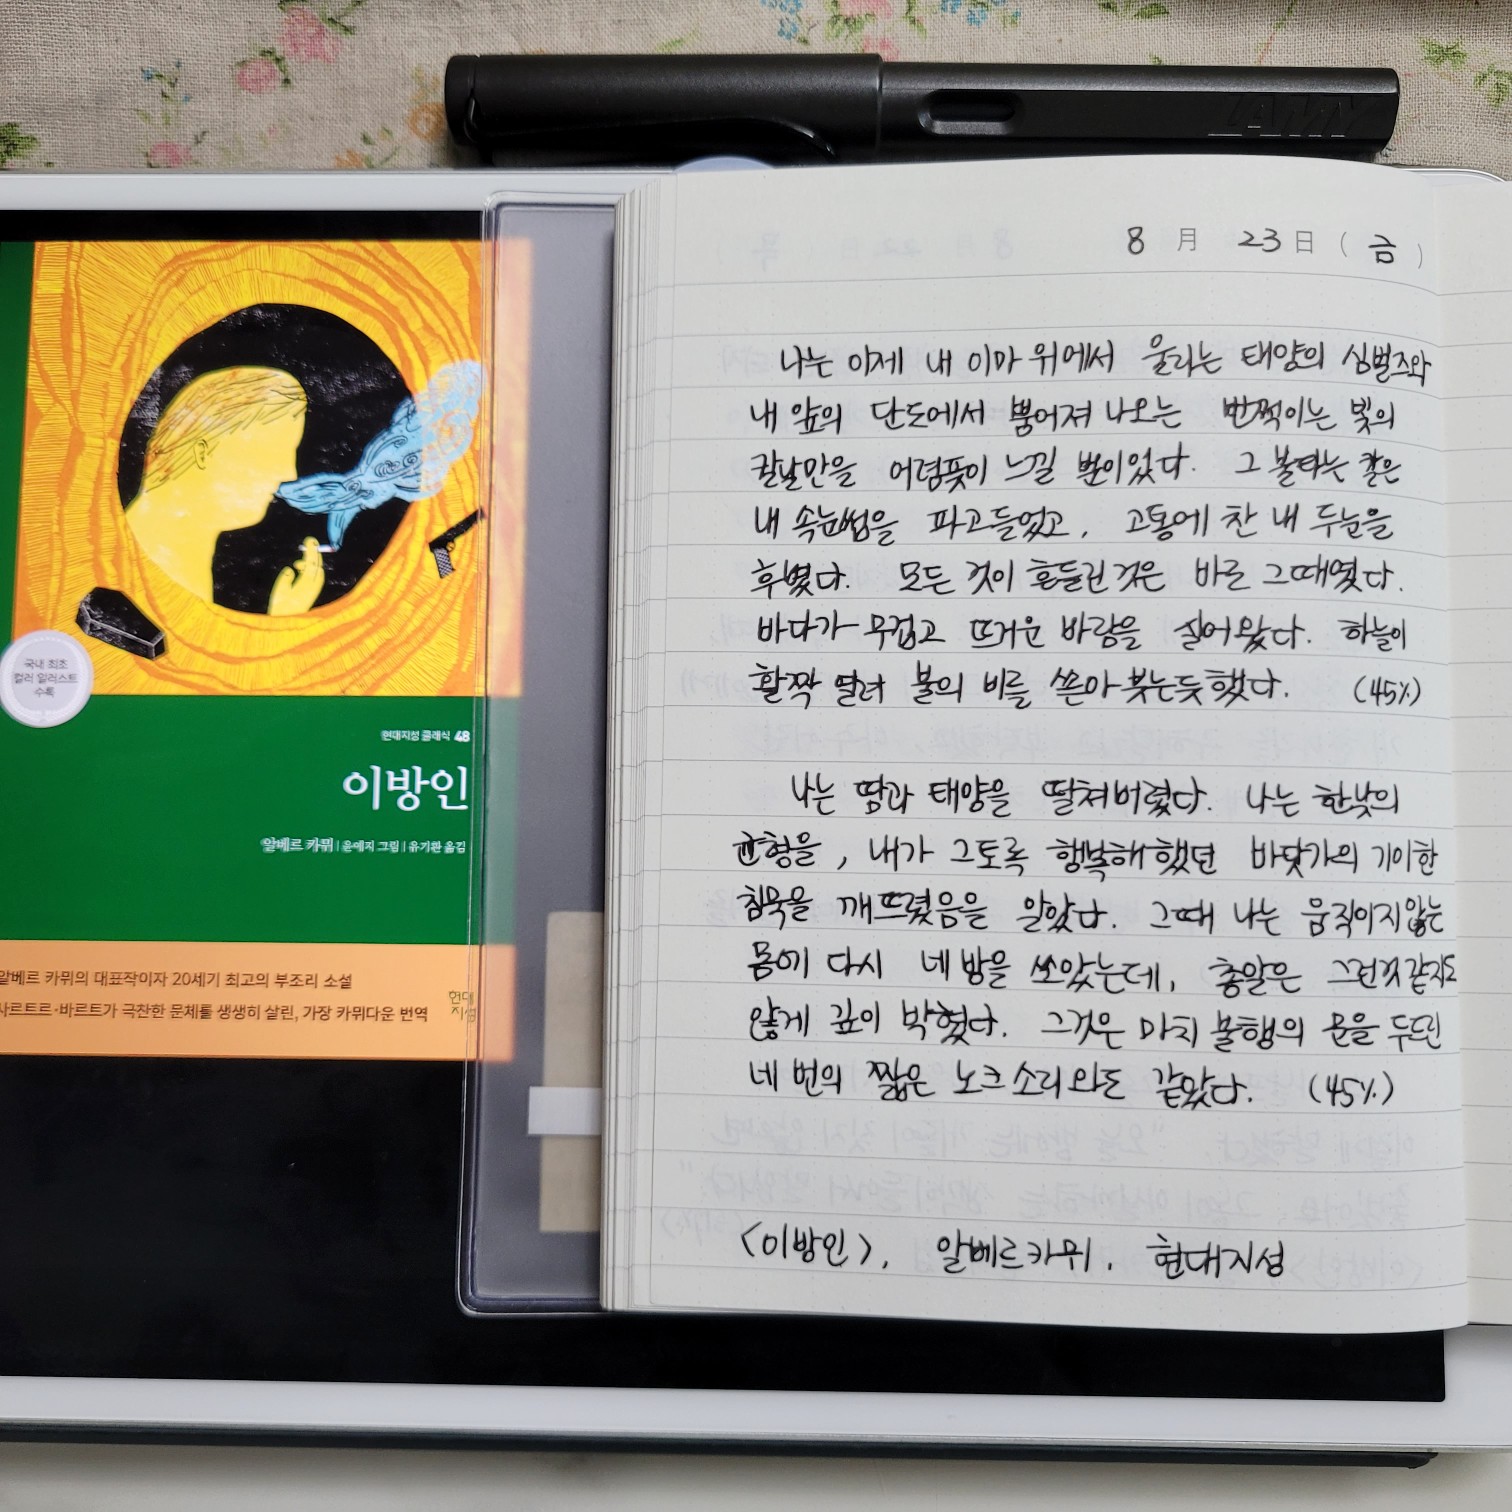 LAMY
국내 최초
컬러 일러스트
수록
현대지성 클래식 48
이방인
알베르 카뮈 | 윤예지 그림 | 유기환 옮김
알베르 카뮈의 대표작이자 20세기 최고의 부조리 소설
사르트르·바르트가 극찬한 문체를 생생히 살린, 가장 카뮈다운 번역
현대
지성
8 月 23 日 ( 금 )
나는 이제 내 이마 위에서 울리는 태양의 심벌즈와
내 앞의 단도에서 뿜어져 나오는 번쩍이는 빛의
칼날만을 어렴풋이 느낄 뿐이었다. 그 불타는 칼은
내 속눈썹을 파고들었고, 고통에 찬 내 두눈을
후볐다. 모든 것이 흔들린 것은 바로 그때였다.
바다가 무겁고 뜨거운 바람을 실어왔다. 하늘이
활짝 열려 불의 비를 쏟아 붓는듯했다. (45%)
나는 땀과 태양을 떨쳐버렸다. 나는 한낮의
균형을, 내가 그토록 행복해했던 바닷가의 기이한
침묵을 깨뜨렸음을 알았다. 그때 나는 움직이지않는
몸에 다시 네 방을 쏘았는데, 총알은 그런것 같지도
않게 깊이 박혔다. 그것은 마치 불행의 문을 두드린
네 번의 짧은 노크 소리와도 같았다. (45%)
<이방인>, 알베르카뮈, 현대지성